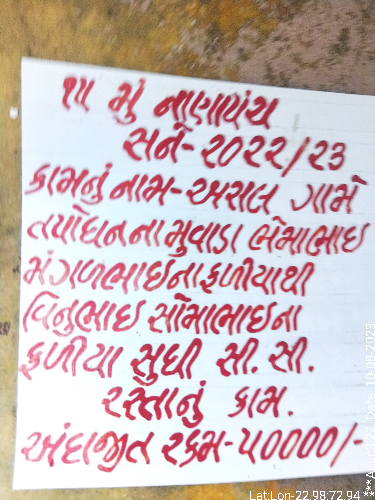 ૧૫ મું નાણાપંચ
સને-૨૦૨૨/૨૩
કામનું નામ-અરાલ ગામે
તપોધનના મુવાડા ભેમાભાઇ
મંગળભાઇના ફળીયાથી
વિનુભાઇ સોમાભાઇના
ફળીયા સુધી સી. સી.
રસ્તાનું કામ.
અંદાજીત રકમ-૫૦૦૦૦/-
Lat:Lon-22.98:72.94
Date 10-08-2023